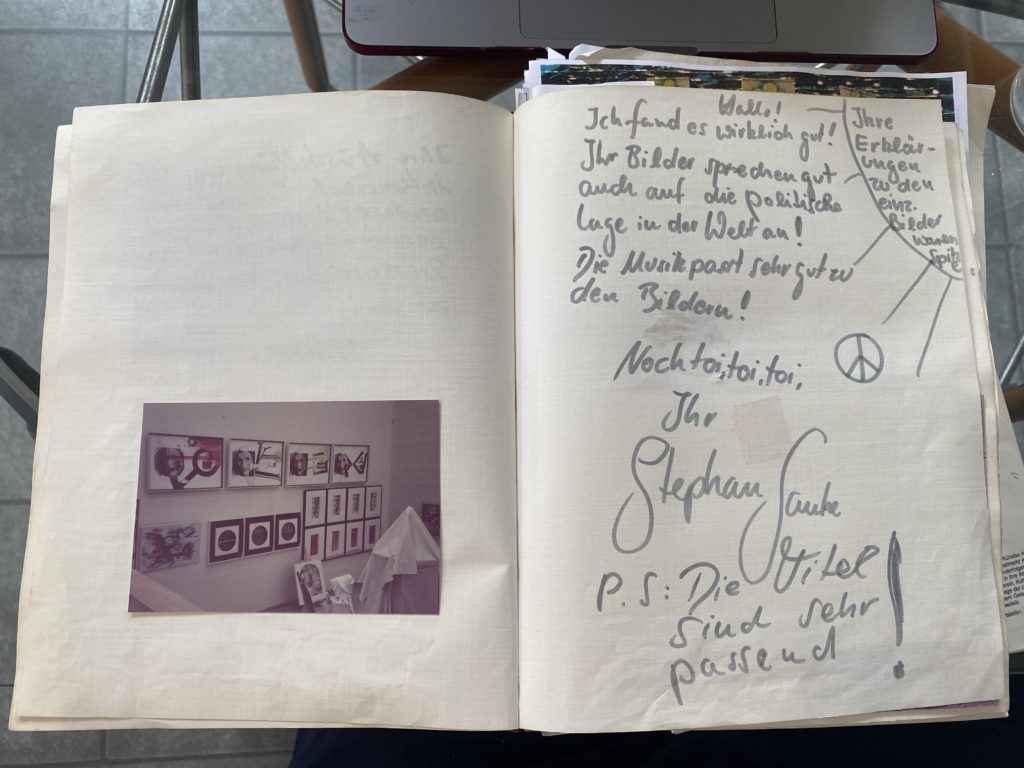 Hallo!
Ich fand es wirklich gut!
Ihr Bilder sprechen gut
auch auf die politische
Lage in der Welt an!
Die Musik passt sehr gut zu
den Bildern!
Ihre
Erklär-
ungen
zu den
einz.
Bilder
waren
Spitze
Noch toi, toi, toi,
Ihr
Stephan
P.S.: Die Titel
sind sehr
passend!